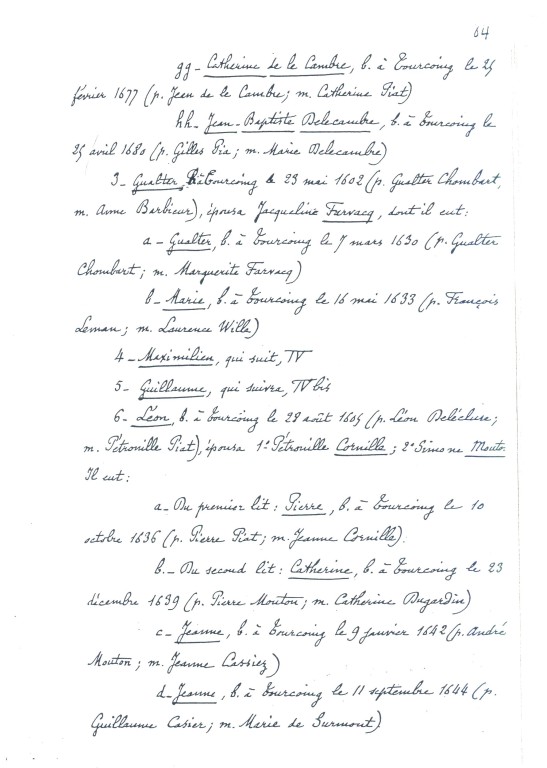 64
gg - Catherine de le Cambre, b. à Tourcoing le 25
février 1677 (p. Jean de le Cambre; m. Catherine Piat)
hh - Jean-Baptiste Delecambre, b. à Tourcoing le
25 avril 1680 (p. Gilles Pia; m. Marie Delecambre)
3 - Gualter, b. à Tourcoing le 23 mai 1602 (p. Gualter Chombart,
m. Anne Barbieur), épousa Jacqueline Farvacq, dont il eut:
a - Gualter, b. à Tourcoing le 7 mars 1630 (p. Gualter
Chombart; m. Marguerite Farvacq)
b - Marie, b. à Tourcoing le 16 mai 1633 (p. François
Leman; m. Laurence Wille)
4 - Maximilien, qui suit, IV
5 - Guillaume, qui suivra, IV bis
6 - Léon, b. à Tourcoing le 28 août 1605 (p. Léon Delécluse;
m. Pétronille Piat), épousa 1° Pétronille Cornille; 2° Simone Mouton.
Il eut:
a - Du premier lit: Pierre, b. à Tourcoing le 10
octobre 1636 (p. Pierre Piat; m. Jeanne Cornille).
b. - Du second lit: Catherine, b. à Tourcoing le 23
décembre 1639 (p. Pierre Mouton; m. Catherine Dugardin)
c - Jeanne, b. à Tourcoing le 9 janvier 1642 (p. André
Mouton; m. Jeanne Cassiez)
d - Jeanne, b. à Tourcoing le 11 septembre 1644 (p.
Guillaume Casier; m. Marie de Surmont)